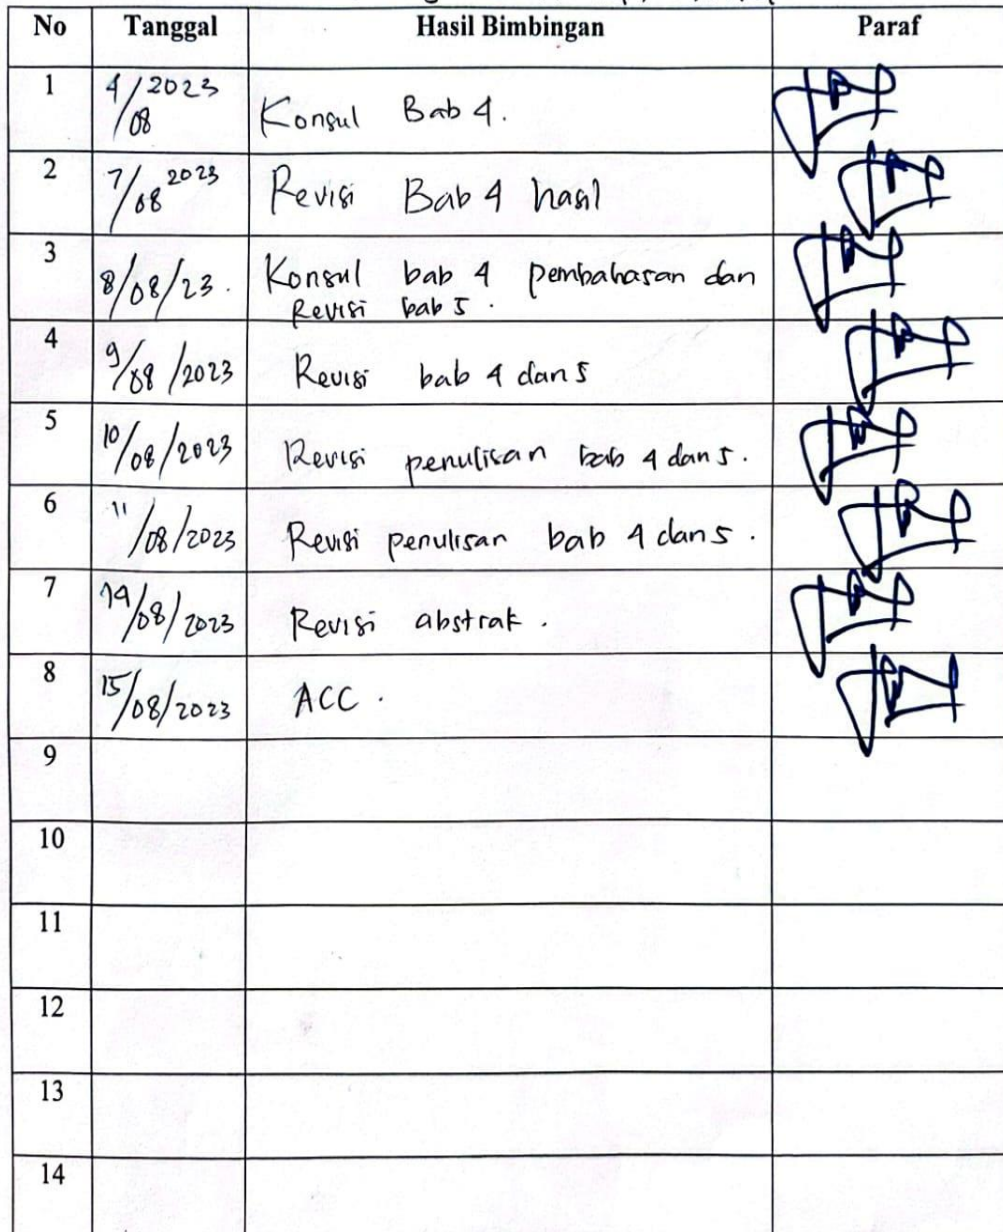 No Tanggal Hasil Bimbingan Paraf
1 4/08/2023 Konsul Bab 4.
2 7/08 2023 Revisi Bab 4 hasil
3 8/08/23. Konsul bab 4 pembahasan dan
Revisi bab 5.
4 9/08/2023 Revisi bab 4 dan 5
5 10/08/2023 Revisi penulisan bab 4 dan 5.
6 11/08/2023 Revisi penulisan bab 4 dan 5.
7 14/08/2023 Revisi abstrak.
8 15/08/2023 ACC.
9
10
11
12
13
14